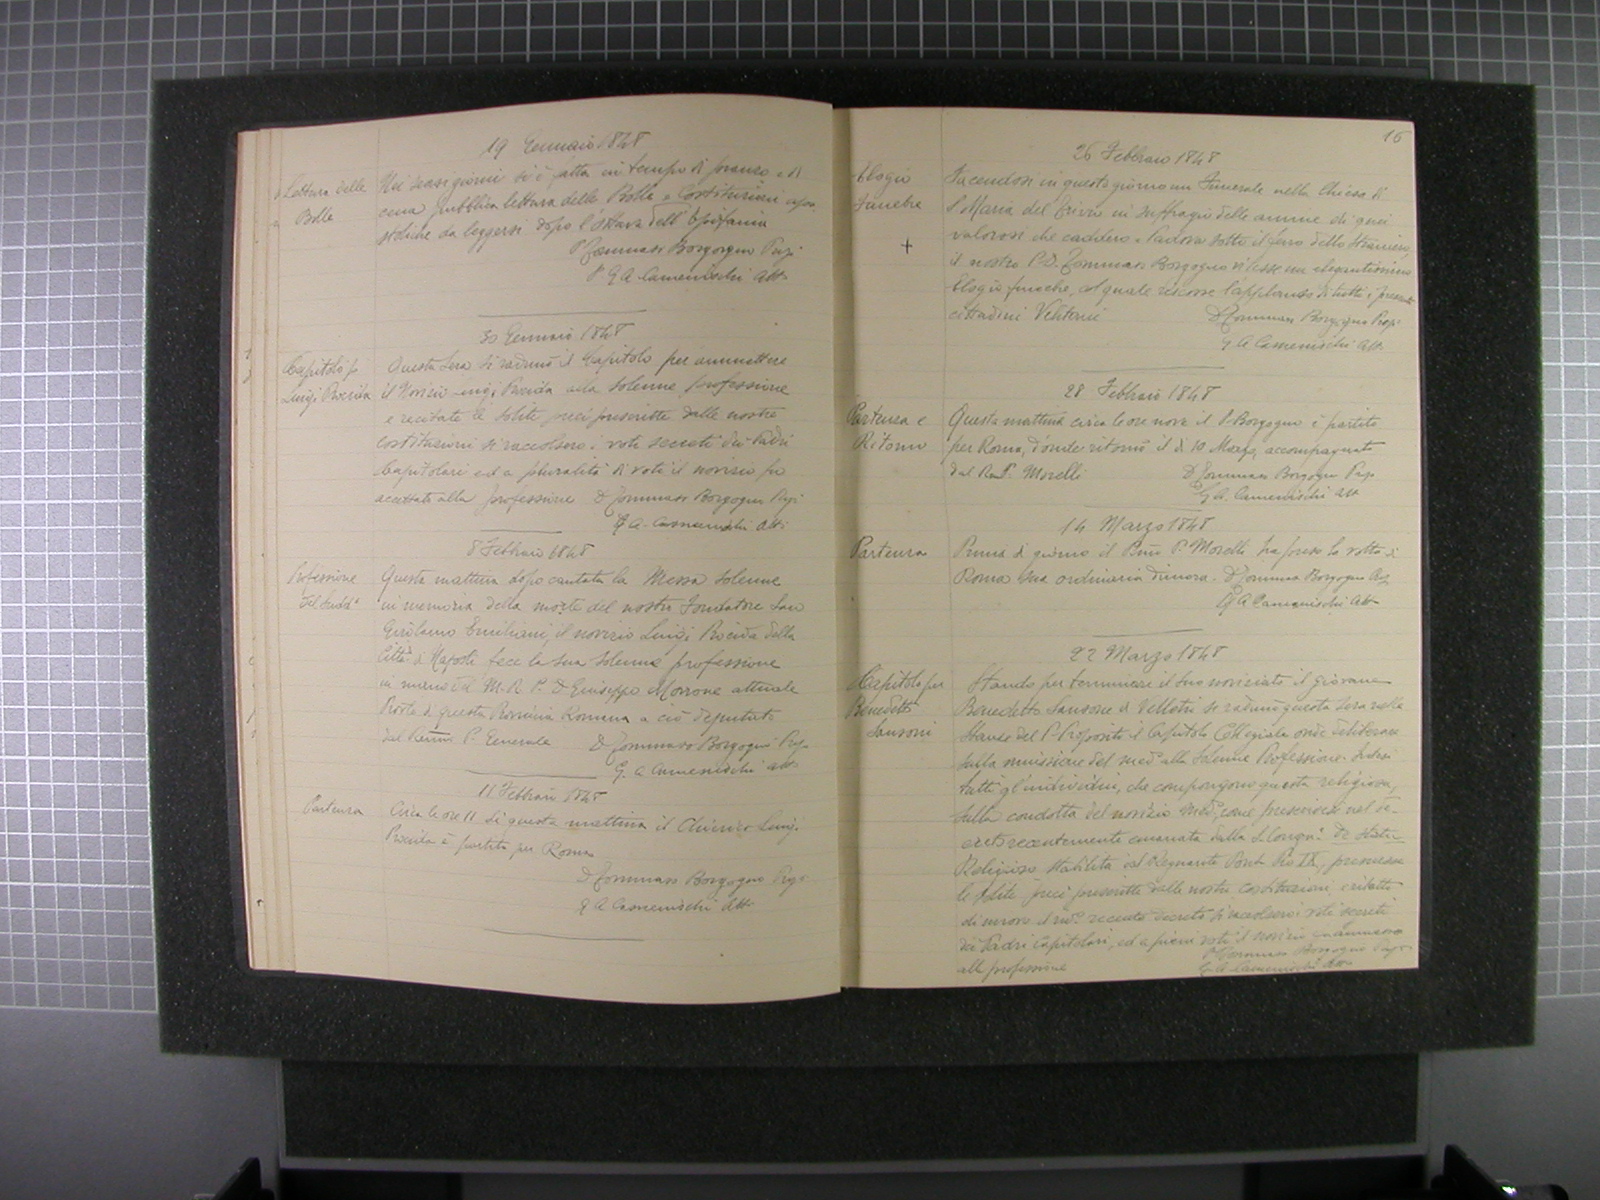 19 Gennaio 1848
Lettura delle
Bolle
Ne' scorsi giorni si è fatta in tempo di pranzo e di
cena pubblica lettura delle Bolle e Costituzioni apo-
stoliche da leggersi dopo l'Ottava dell'Epifania
D Tommaso Borgogno Prep.
P G A Camenischi Att.
30 Gennaio 1848
Capitolo p.
Luigi Procida
Questa sera si radunò il Capitolo per ammettere
il Novizio Luigi Procida alla solenne professione
e recitate le solite preci prescritte dalle nostre
Costituzioni si raccolsero i voti secreti dei Padri
Capitolari ed a pluralità di voti il novizio fu
accettato alla professione D Tommaso Borgogno Prep.
G A Camenischi Att.
8 Febbraio 1848
Professione
del sudd°
Questa mattina dopo cantata la Messa solenne
in memoria della morte del nostro Fondatore San
Girolamo Emiliani, il novizio Luigi Procida della
Città di Napoli fece la sua solenne professione
in mano del M. R. P. D Giuseppe Morrone attuale
di questa Provincia Romana a ciò deputato
dal Rmo P. Generale D Tommaso Borgogno Prep.
G. A Camenischi Att.
11 Febbraio 1848
Partenza
Circa le ore 11 di questa mattina il Chierico Luigi
Procida è partito per Roma
D Tommaso Borgogno Prep.
G A Camenischi Att.
15
26 Febbraio 1848
Elogio
funebre
+
Facendosi in questo giorno un Funerale nella Chiesa di
S Maria del Trivio in suffragio delle anime di quei
valorosi che caddero a Padova sotto il ferro dello straniero,
il nostro P. D. Tommaso Borgogno vi lesse un elegantissimo
Elogio funebre, al quale riscosse l'applauso di tutti i presenti
cittadini Veliterni D Tommaso Borgogno Prep.
G A Camenischi Att.
28 Febbraio 1848
Partenza e
Ritorno
Questa mattina circa le ore nove il P. Borgogno è partito
per Roma, d'onde ritornò il dì 10 Marzo, accompagnato
dal P. Morelli D Tommaso Borgogno Prep.
G A. Camenischi Att.
14 Marzo 1848
Partenza
Prima di giorno il P. Morelli ha preso la volta di
Roma sua ordinaria dimora. D Tommaso Borgogno Prep.
G A Camenischi Att.
22 Marzo 1848
Capitolo per
Benedetto
Sansoni
Stando per terminare il suo noviziato il giovane
Benedetto Sansone di Velletri si radunò questa sera nelle
stanze del P. Preposito il Capitolo Collegiale onde deliberare
sulla missione del med° alla solenne Professione. Intesi
tutti gl'individui, che compongono questa religiosa,
sulla condotta del novizio med°, come prescrivesi nel de-
creto recentemente emanato dalla S. Congne De Statu
Religioso stabilita dal Regnante Pont. Pio IX, premesse
le solite preci prescritte dalle nostre costituzioni e
di nuovo il recente decreto si raccolsero i voti secreti
dei Padri capitolari, ed a pieni voti il novizio
alla professione D Tommaso Borgogno Prep.
G. A. Camenischi Att.